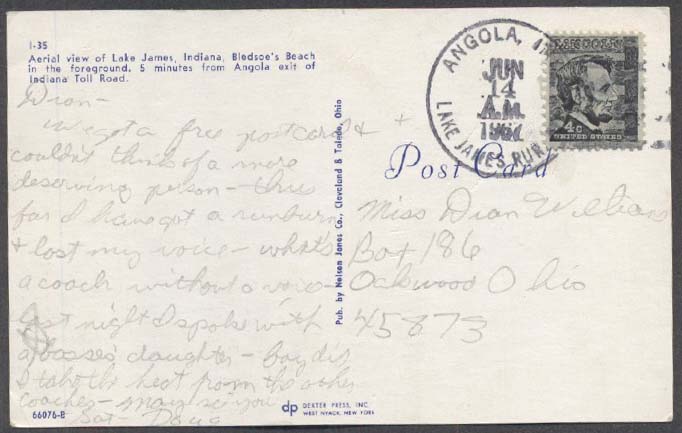 I-35
Aerial view of Lake James, Indiana, Bledsoe's Beach
in the foreground. 5 minutes from Angola exit of
Indiana Toll Road.
Dian-
we got a free postcard &
couldn't think of a more
deserving person - thus
far I have got a sunburn
& lost my voice - what's
a coach without a voice-
last night I spoke with
a bosses daughter - boy did
I take the heat from the other
coaches - may see you
Sat - Doug
66076-B
Pub. by Nelson Jones Co., Cleveland & Toledo, Ohio
dp DEXTER PRESS, INC.
WEST NYACK, NEW YORK
ANGOLA,
JUN
14
A.M.
1967
LAKE JAMES RUR
LINCOLN
4c
UNITED STATES
Post Card
Miss Dian Williams
Box 186
Oakwood Ohio
45873